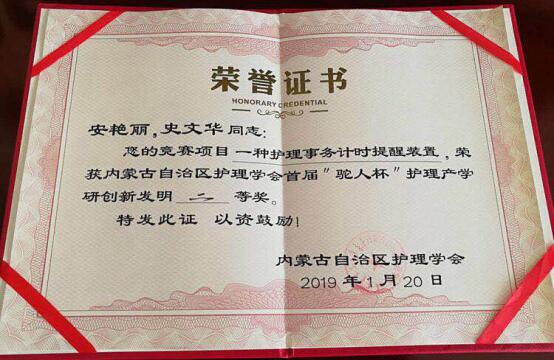 荣誉证书
HONORARY CREDENTIAL
安艳丽，史文华同志：
您的竞赛项目一种护理事务计时提醒装置，荣
获内蒙古自治区护理学会首届"驼人杯"护理产学
研创新发明二等奖。
特发此证 以资鼓励！
内蒙古自治区护理学会
2019年1月20日